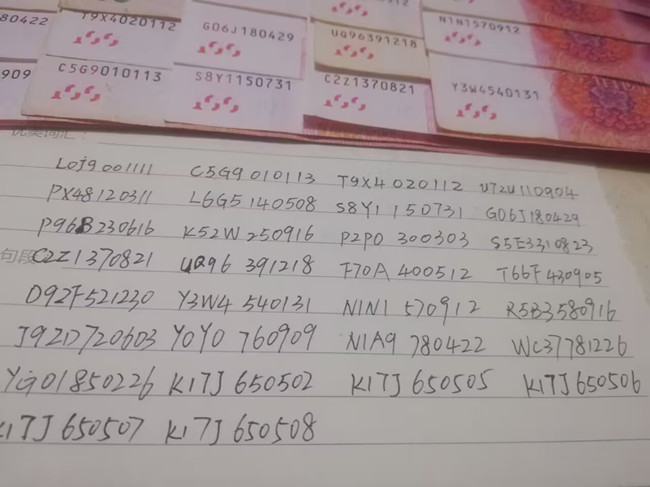 80422 T9X4020112 G06J180429 UQ96391218 N1N1570912
909 C5G9010113 S8Y1150731 C2Z1370821 Y3W4540131
L0J9001111 C5G9010113 T9X4020112 U72U110904
PX48120311 L6G5140508 S8Y1150731 G06J180429
P96B230616 K52W250916 P2P0300303 S5E3310823
句段 C2Z1370821 UQ96391218 F70A400512 T66F430905
D92F521230 Y3W4540131 N1N1570912 R5B3580916
J9ZD720603 Y0Y0760909 N1A9780422 WC37781226
YG01850226 K17J650502 K17J650505 K17J650506
K17J650507 K17J650508